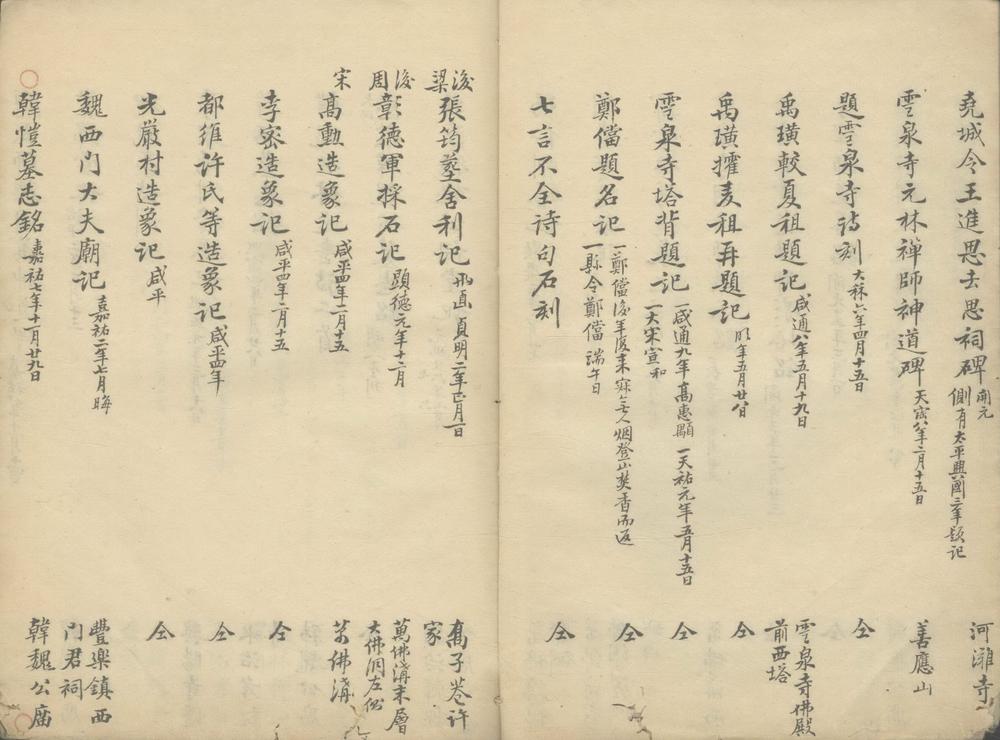 堯城令王進思去思祠碑 開元 側有太平興國三年題記 河灘寺
雲泉寺元林禪師神道碑 天寶八年二月十五日 善應山
題雲泉寺詩刻 大曆六年四月十五日 仝
禹璜較夏祖題記 咸通八年五月十九日 雲泉寺佛殿前西塔
禹璜㩴麦祖再題記 明年五月廿八日 仝
雲泉寺塔背題記 一咸通九年高惠顯 一天祐元年五月十五日 一大宋宣和 仝
鄭儅題名記 一鄭儅後年復來寂無人烟登山焚香而返 一縣令鄭儅端午日 仝
七言不全詩句石刻 仝
後梁 張筠𦵏舍利記 正面 貞明二年正月一日 高子巷許家
後周 彰德軍採石記 顯德元年十二月 萬佛溝末層大佛洞左側
宋 高勳造象記 咸平四年二月十五 萬佛溝
李密造象記 咸平四年二月十五 仝
都維許氏等造象記 咸平四年 仝
光嚴村造象記 咸平 仝
魏西門大夫廟記 嘉祐二年七月晦 豐樂鎮西門君祠
韓愷墓志銘 嘉祐七年十一月廿九日 韓魏公廟